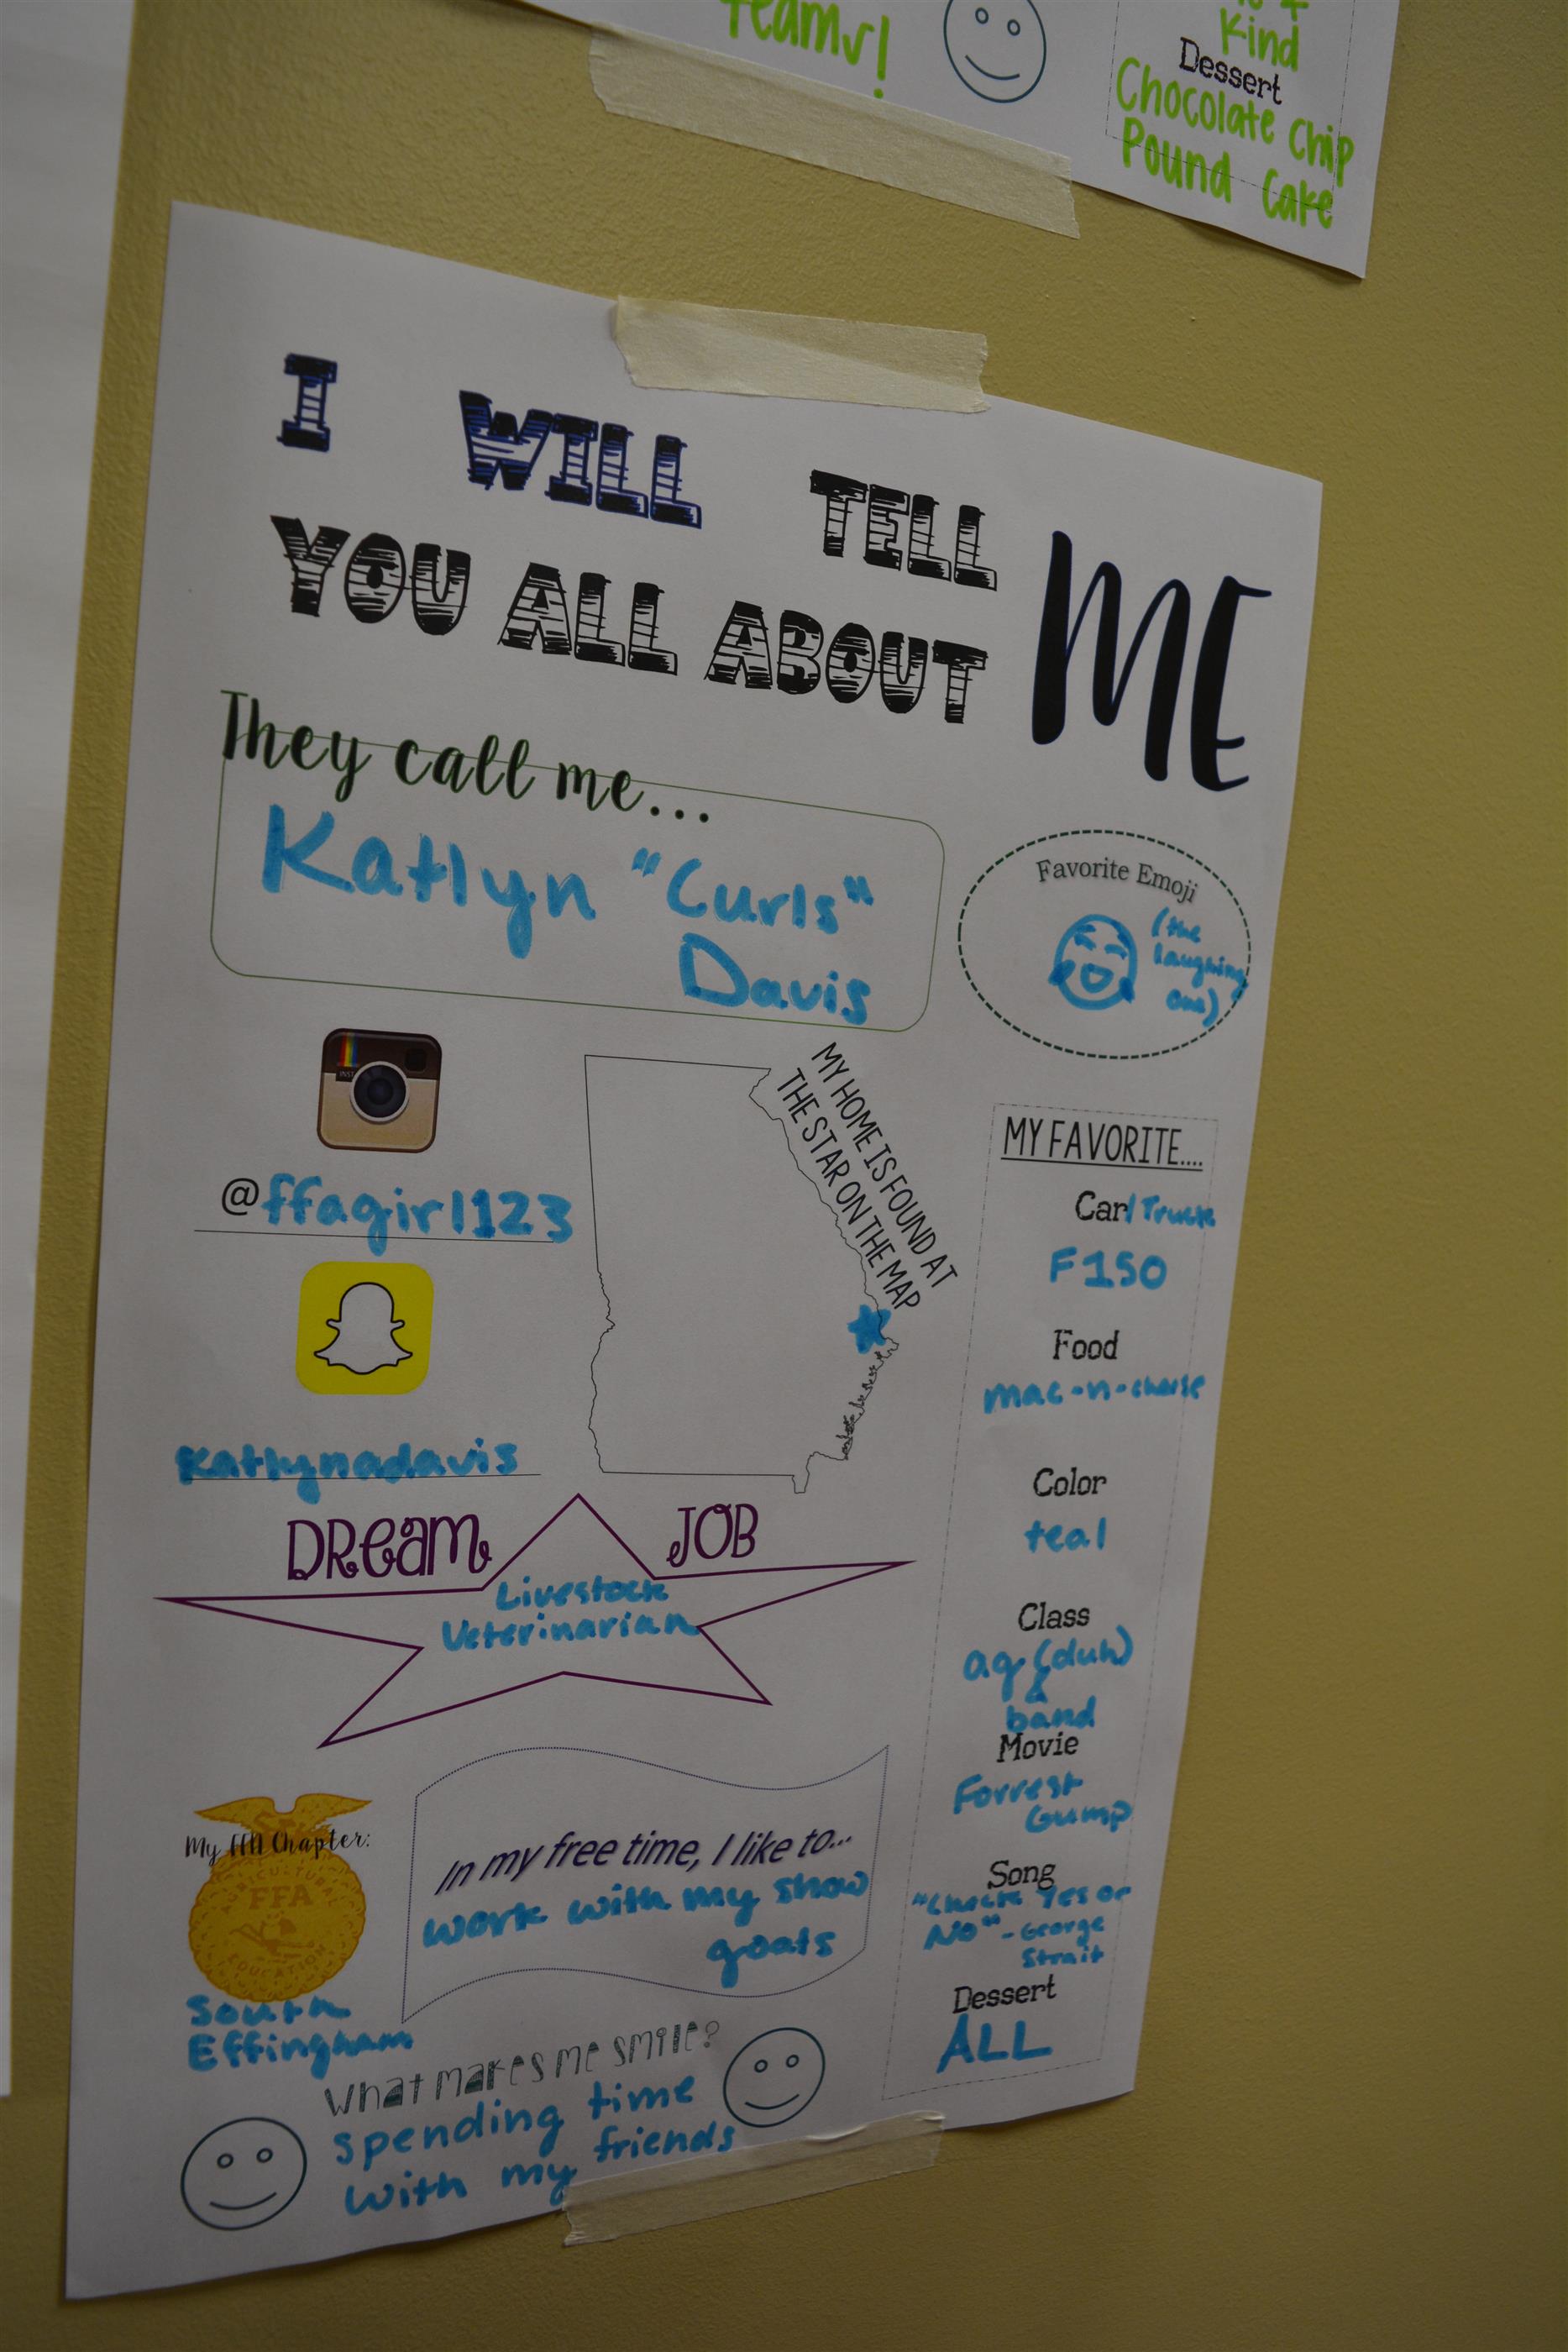 Teams!
Kind
Dessert
Chocolate Chip
Pound Cake
I WILL TELL
YOU ALL ABOUT ME
They call me...
Katlyn "Curls"
Davis
Favorite Emoji
(the
laughing
one)
@ffagirl123
katlynadavis
MY HOME IS FOUND AT
THE STAR ON THE MAP
DREAM JOB
Livestock
Veterinarian
My FFA Chapter:
AGRICULTURAL
FFA
EDUCATION
South
Effingham
In my free time, I like to...
work with my show
goats
What makes me smile?
spending time
with my friends
MY FAVORITE....
Car/Truck
F150
Food
mac-n-cheese
Color
teal
Class
ag (duh)
&
band
Movie
Forrest
Gump
Song
"Check Yes or
No" - George
Strait
Dessert
ALL